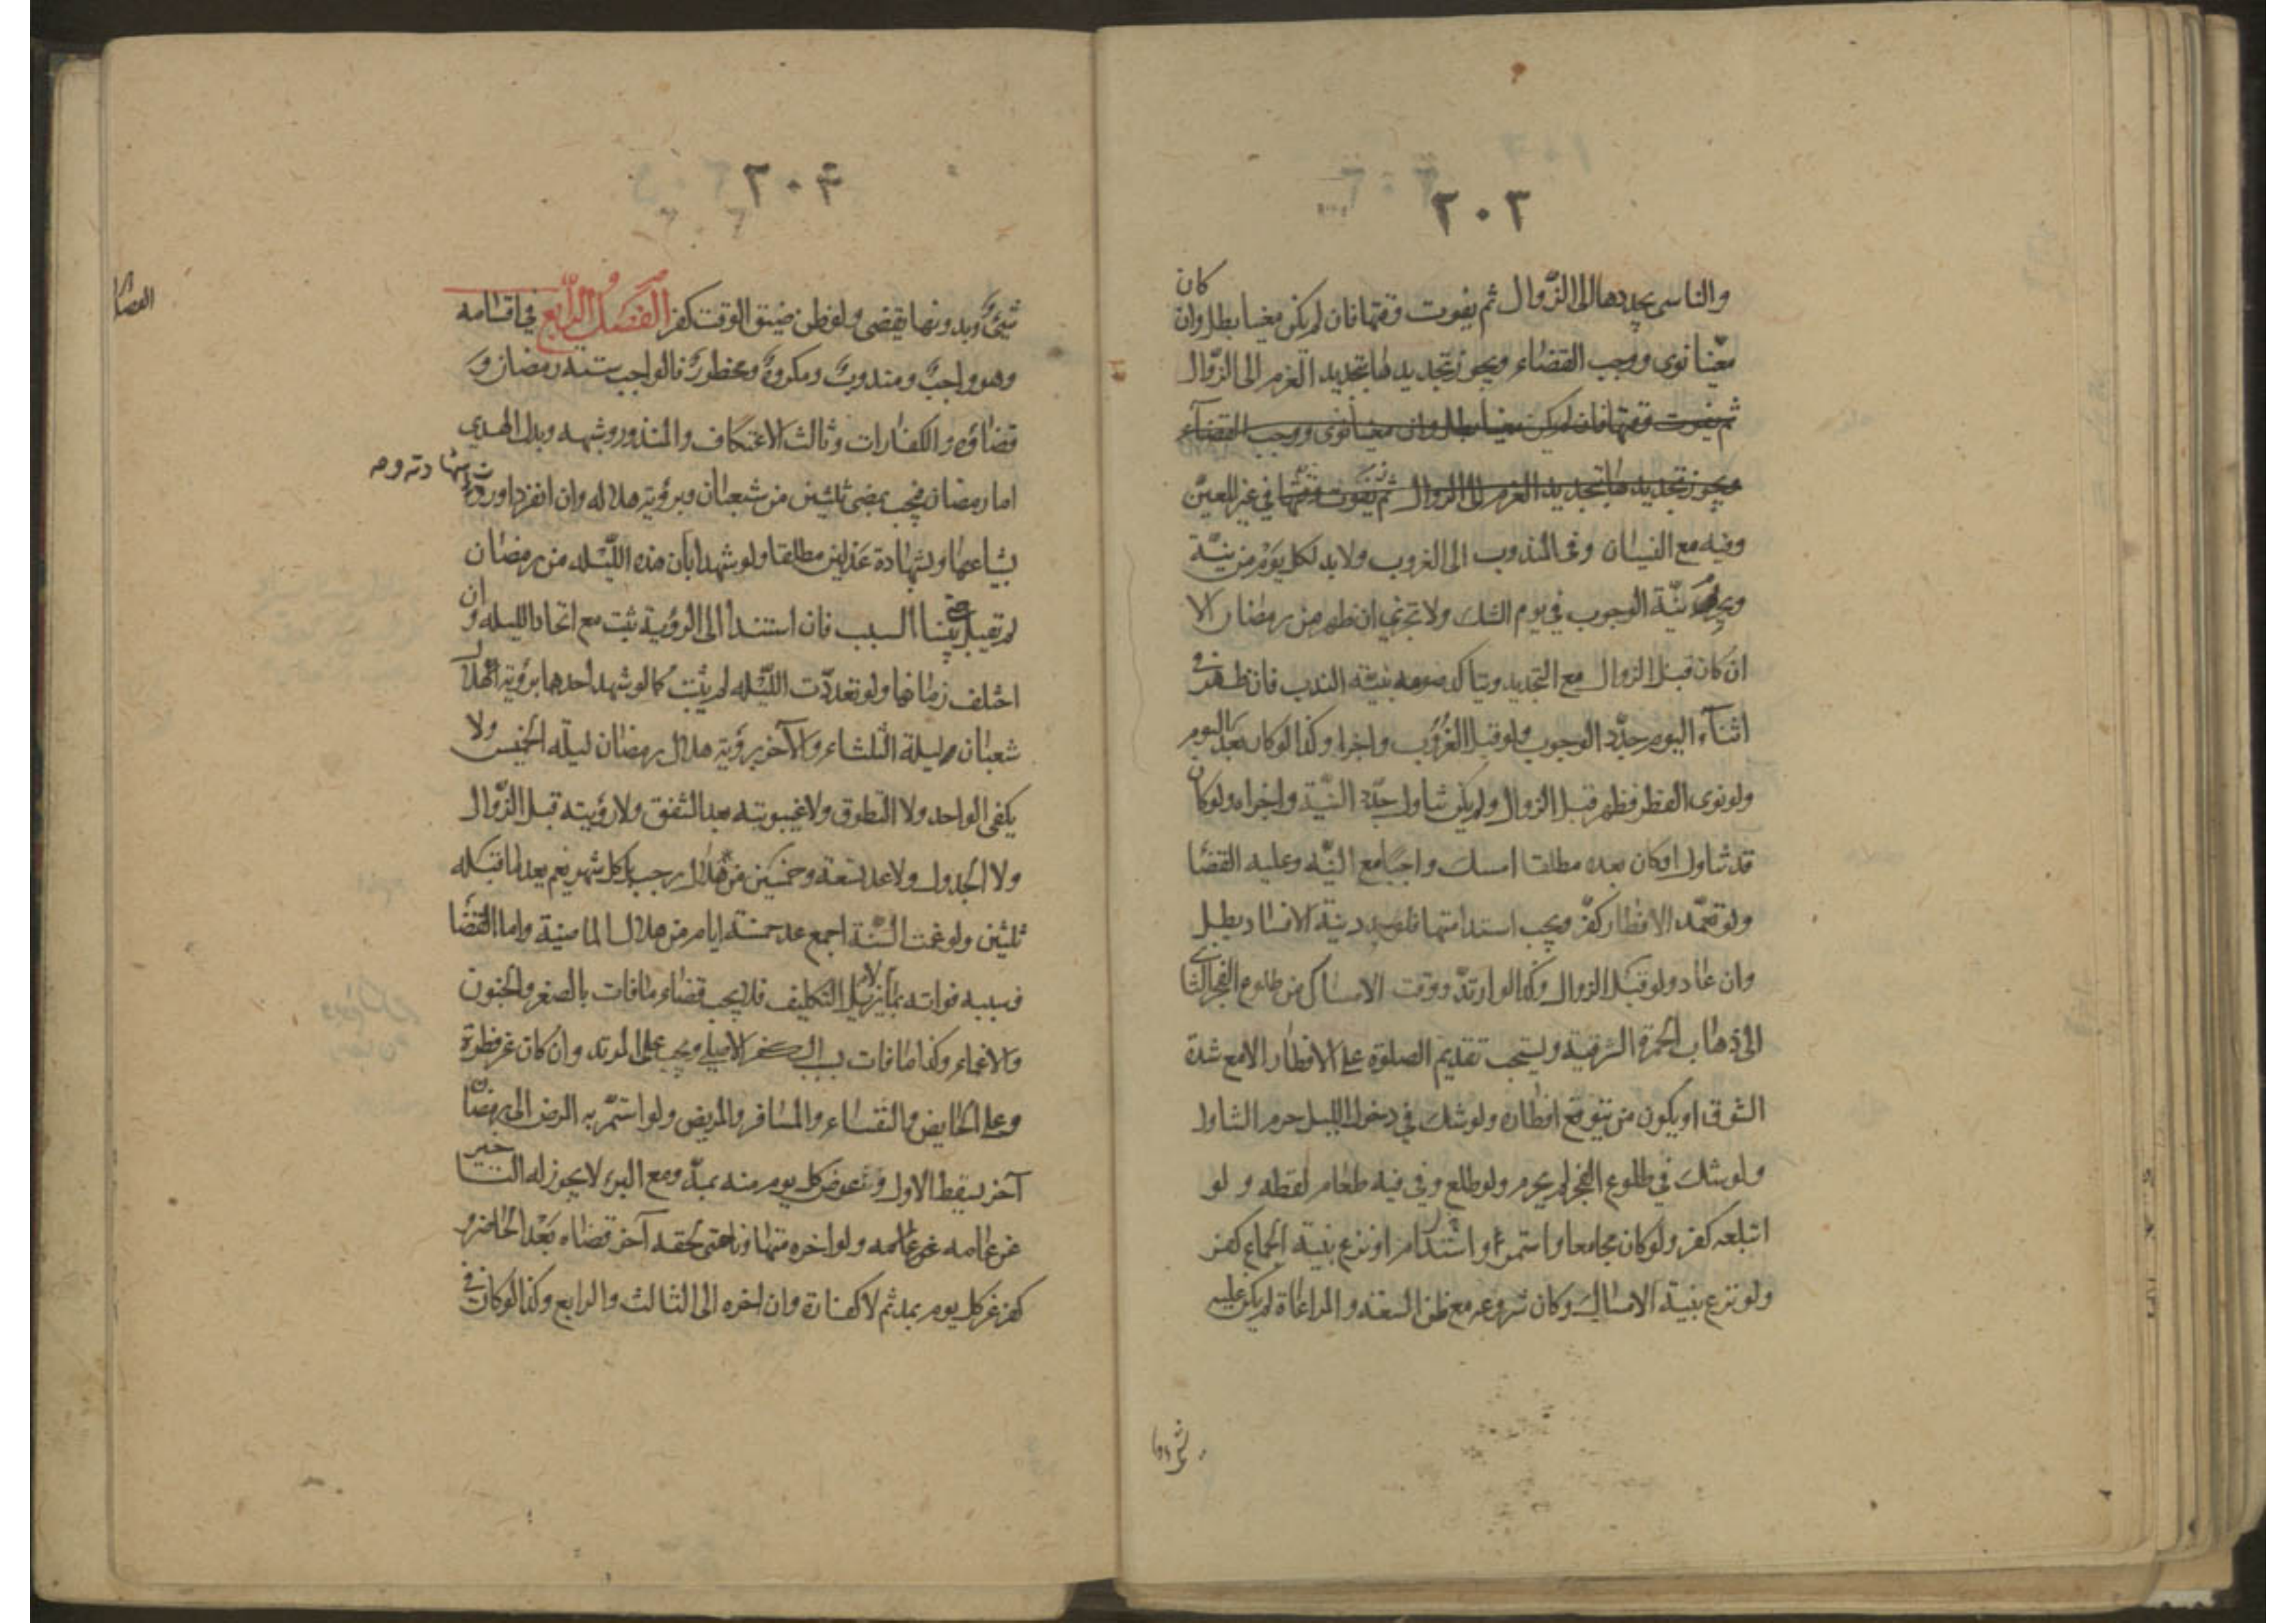 ٢٠٣
والناسى يجددها الى الزوال ثم يفوت وقتها فان لم يكن معينا بطل وان كان
معينا نوى ووجب القضاء ويجوز تجديدها بتجديد العزم الى الزوال
ثم يفوت وقتها فان لم يكن معينا بطل وان معينا نوى ووجب القضآء
ويجوز تجديدها بتجديد العزم الى الزوال ثم يفوت وقتها في غير المعين
وفيه مع النسيان وفى المندوب الى الغروب ولا بد لكل يوم من نيّة
نيّة الوجوب في يوم الشك ولا تجزي ان ظهر من رمضان الا
ان كان قبل الزوال مع التجديد ويتأكد صومه بنيّة الندب فان ظهر في
اثنآء اليوم جدّد الوجوب ولو قبل الغروب واجزا وكذا لوكان بعد اليوم
ولو نوى الفطر فظهر قبل الزوال ولم يكن تناول جدّد النيّة واجزا ولو كان
قد تناول اوكان بعده مطلقا امسك واجبا مع النيّه وعليه القضا
ولو تعمّد الافطار كفّر ويجب استدامتها فلو جدد نية الافساد بطل
وان عاد ولو قبل الزوال وكذا لو ارتدّ ووقت الامساك من طلوع الفجر الثانى
الى ذهاب الحمرة الشرقية ويستحب تقديم الصلوة على الافطار الا مع شدة
الشوق او يكون من يتوقع افطاره ولو شك في دخول الليل حرم التناول
ولو شك في طلوع الفجر لم يحرم ولو طلع وفي فيه طعام لفظه و لو
ابتلعه كفر ولو كان مجامعا واستدام او نزع بنية الجماع كفر
ولو نزع بنية الامساك وكان شروعه مع ظن السعة والمراعاة لم يكن عليه
٢٠٤
شىءٌ وبدونها يقضى ولو ظن ضيق الوقت كفر الفصل الرّابع في اقسامه
وهو واجبٌ ومندوبٌ ومكروهٌ ومحظورٌ فالواجب ستة رمضان و
قضاؤه والكفارات وثالث الاعتكاف والمنذور وشبهه وبدل الهدي
اما رمضان فيجب بمضى ثلثين من شعبان وبرؤية هلاله وان انفرد او ردت شهادته و
بشياعها وبشهادة عدلين مطلقا ولو شهدا بأن هذه الليّلة من رمضان
لم تقبل حتى يبينا السبب فان استندا الى الرؤية ثبت مع اتحاد الليله وان
اختلف زمانهما ولو تعددّت الليّله لم يثبت كما لو شهد احدهما برؤية هلال
شعبان ليلة الثلثاء والآخر برؤية هلال رمضان ليلة الخميس ولا
يكفى الواحد ولا التطوق ولا غيبوبته بعد الشفق ولا رؤيته قبل الزّوال
ولا الجدول ولا عد تسعة وخمسين من هلال رجب بل كل شهر يغم يعد ما قبله
ثلثين ولو غمت السّنة اجمع عد خمسة ايام من هلال الماضية واما القضا
فسببه فواته التكليف فلا يجب قضاء ما فات بالصغر والجنون
والاغماء وكذا ما فات بسبب الكفر الاصلي ويجب على المرتد وان كان عن فطرة
وعلى الحايض والنفساء والمسافر والمريض ولو استمّر به المرض الى رمضان
آخر سقط الاول وعوض كل يوم منه بمدّ ومع البرء لا يجوز له التاخير
عن عامه ولو اخره متهاونا حتى لحقه آخر قضاه بعد الحاضر و
كفر عن كل يوم بمد ثم لا كفارة وان اخره الى الثالث والرابع وكذا لو كان في
القضا